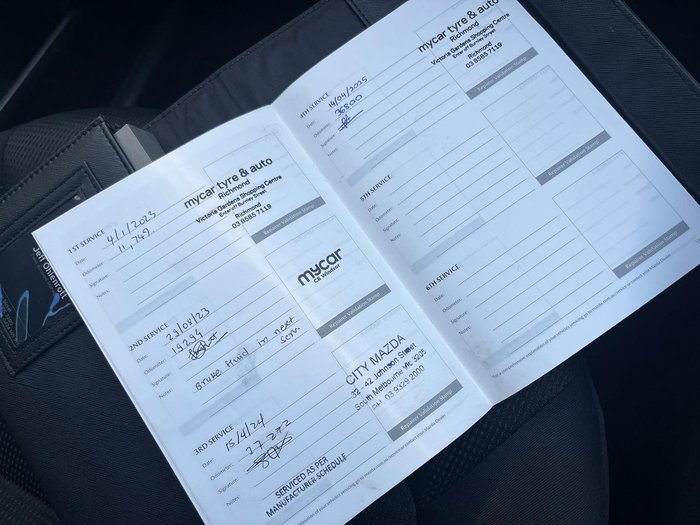 1ST SERVICE
Date: 4/1/2023
Odometer: 11,749.
Signature:
Notes:
mycar tyre & auto
Richmond
Victoria Gardens Shopping Centre
Enter off Burnley Street
Richmond
03 8585 7119
Repairer Validation Stamp
2ND SERVICE
Date: 29/08/23
Odometer: 19294
Signature:
Notes: Brake fluid in next
serv.
mycar
CS Windsor
Repairer Validation Stamp
3RD SERVICE
Date: 15/4/24
Odometer: 27272
Signature:
Notes:
SERVICED AS PER
MANUFACTURER SCHEDULE
CITY MAZDA
32 - 42 Johnson Street
South Melbourne Vic 3205
PH 03 9329 2000
Repairer Validation Stamp
4TH SERVICE
Date: 14/04/2025
Odometer: 36800
Signature:
Notes:
mycar tyre & auto
Richmond
Victoria Gardens Shopping Centre
Enter off Burnley Street
Richmond
03 8585 7119
Repairer Validation Stamp
5TH SERVICE
Date:
Odometer:
Signature:
Notes:
Repairer Validation Stamp
6TH SERVICE
Date:
Odometer:
Signature:
Notes:
Repairer Validation Stamp
Jeff Ohlenrott